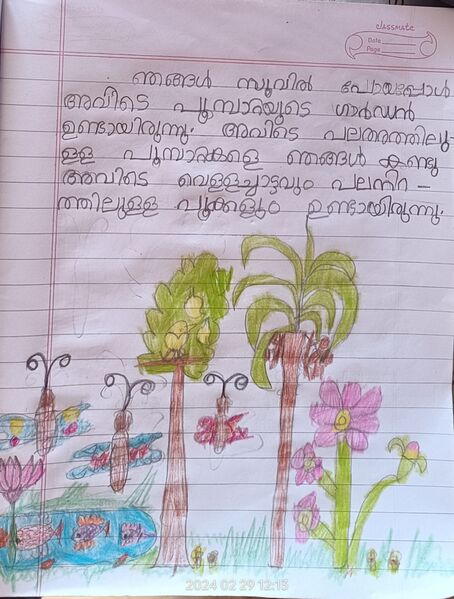 classmate
Date
Page
ഞങ്ങൾ സൂവിൽ പോയപ്പോൾ
അവിടെ പൂമ്പാറ്റയുടെ ഗാർഡൻ
ഉണ്ടായിരുന്നു. അവിടെ പലതരത്തിലു-
ള്ള പൂമ്പാറ്റകളെ ഞങ്ങൾ കണ്ടു
അവിടെ വെള്ളച്ചാട്ടവും പലനിറ -
ത്തിലുള്ള പൂക്കളും ഉണ്ടായിരുന്നു.
2024 02 29 12:13